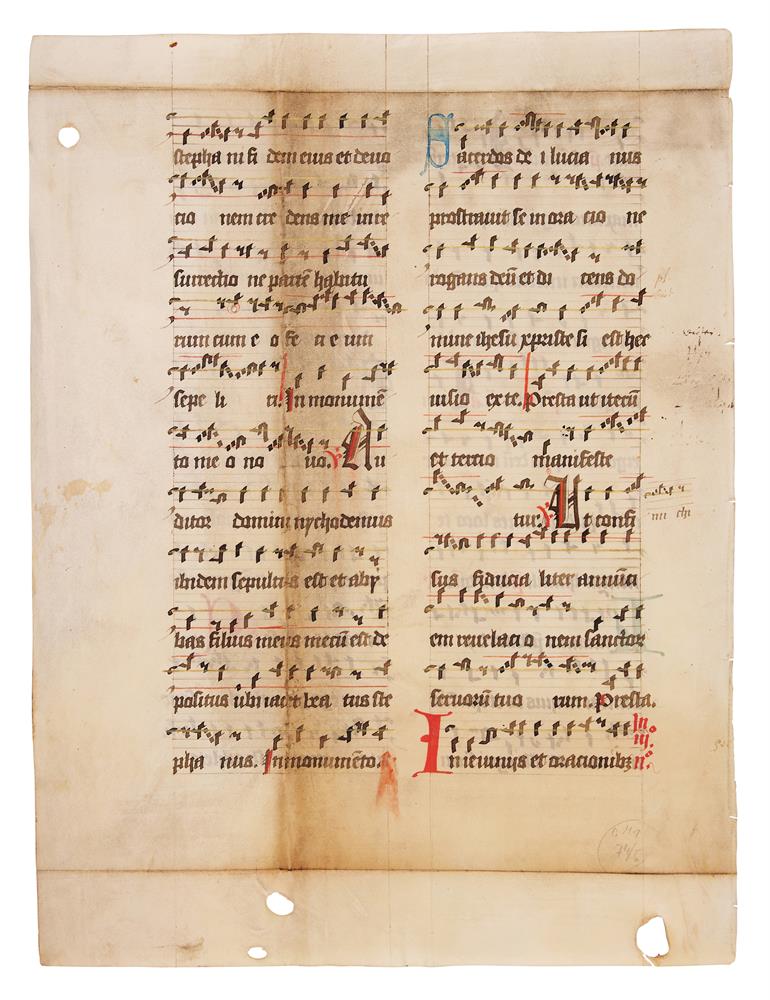 stepha ni fi dem eius et devo
cio nem cre dens me in re
surrectio ne partē habitu
rum cum e o fe ci e um
sepe li ri. In monumē
to me o no vo. Au
ditor domini nychodemus
ibidem sepultus est et aby
bas filius meus mecū est de
positus ubi iacet bea tus ste
pha nus. In monumēto.
Sacerdos de i lucia nus
prostravit se in ora cio ne
rogans deū et di cens do
mine ihesu xpriste si est hec
visio ex te. Presta ut iterū
et tercio manifeste
tur. Ut confi
sus fiducia liter annūci
em revelaci o nem sanctor
servorū tuo rum. Presta.
In ieiuniis et oracionibz